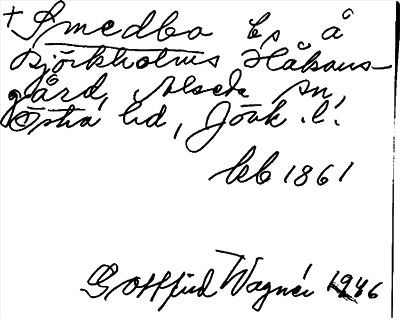 + Smedbo bs å
Björkholms Håkans-
gård, Alseda sn,
Östra hd, Jönk. l.
beb 1861
Gottfrid Wagnér 1946